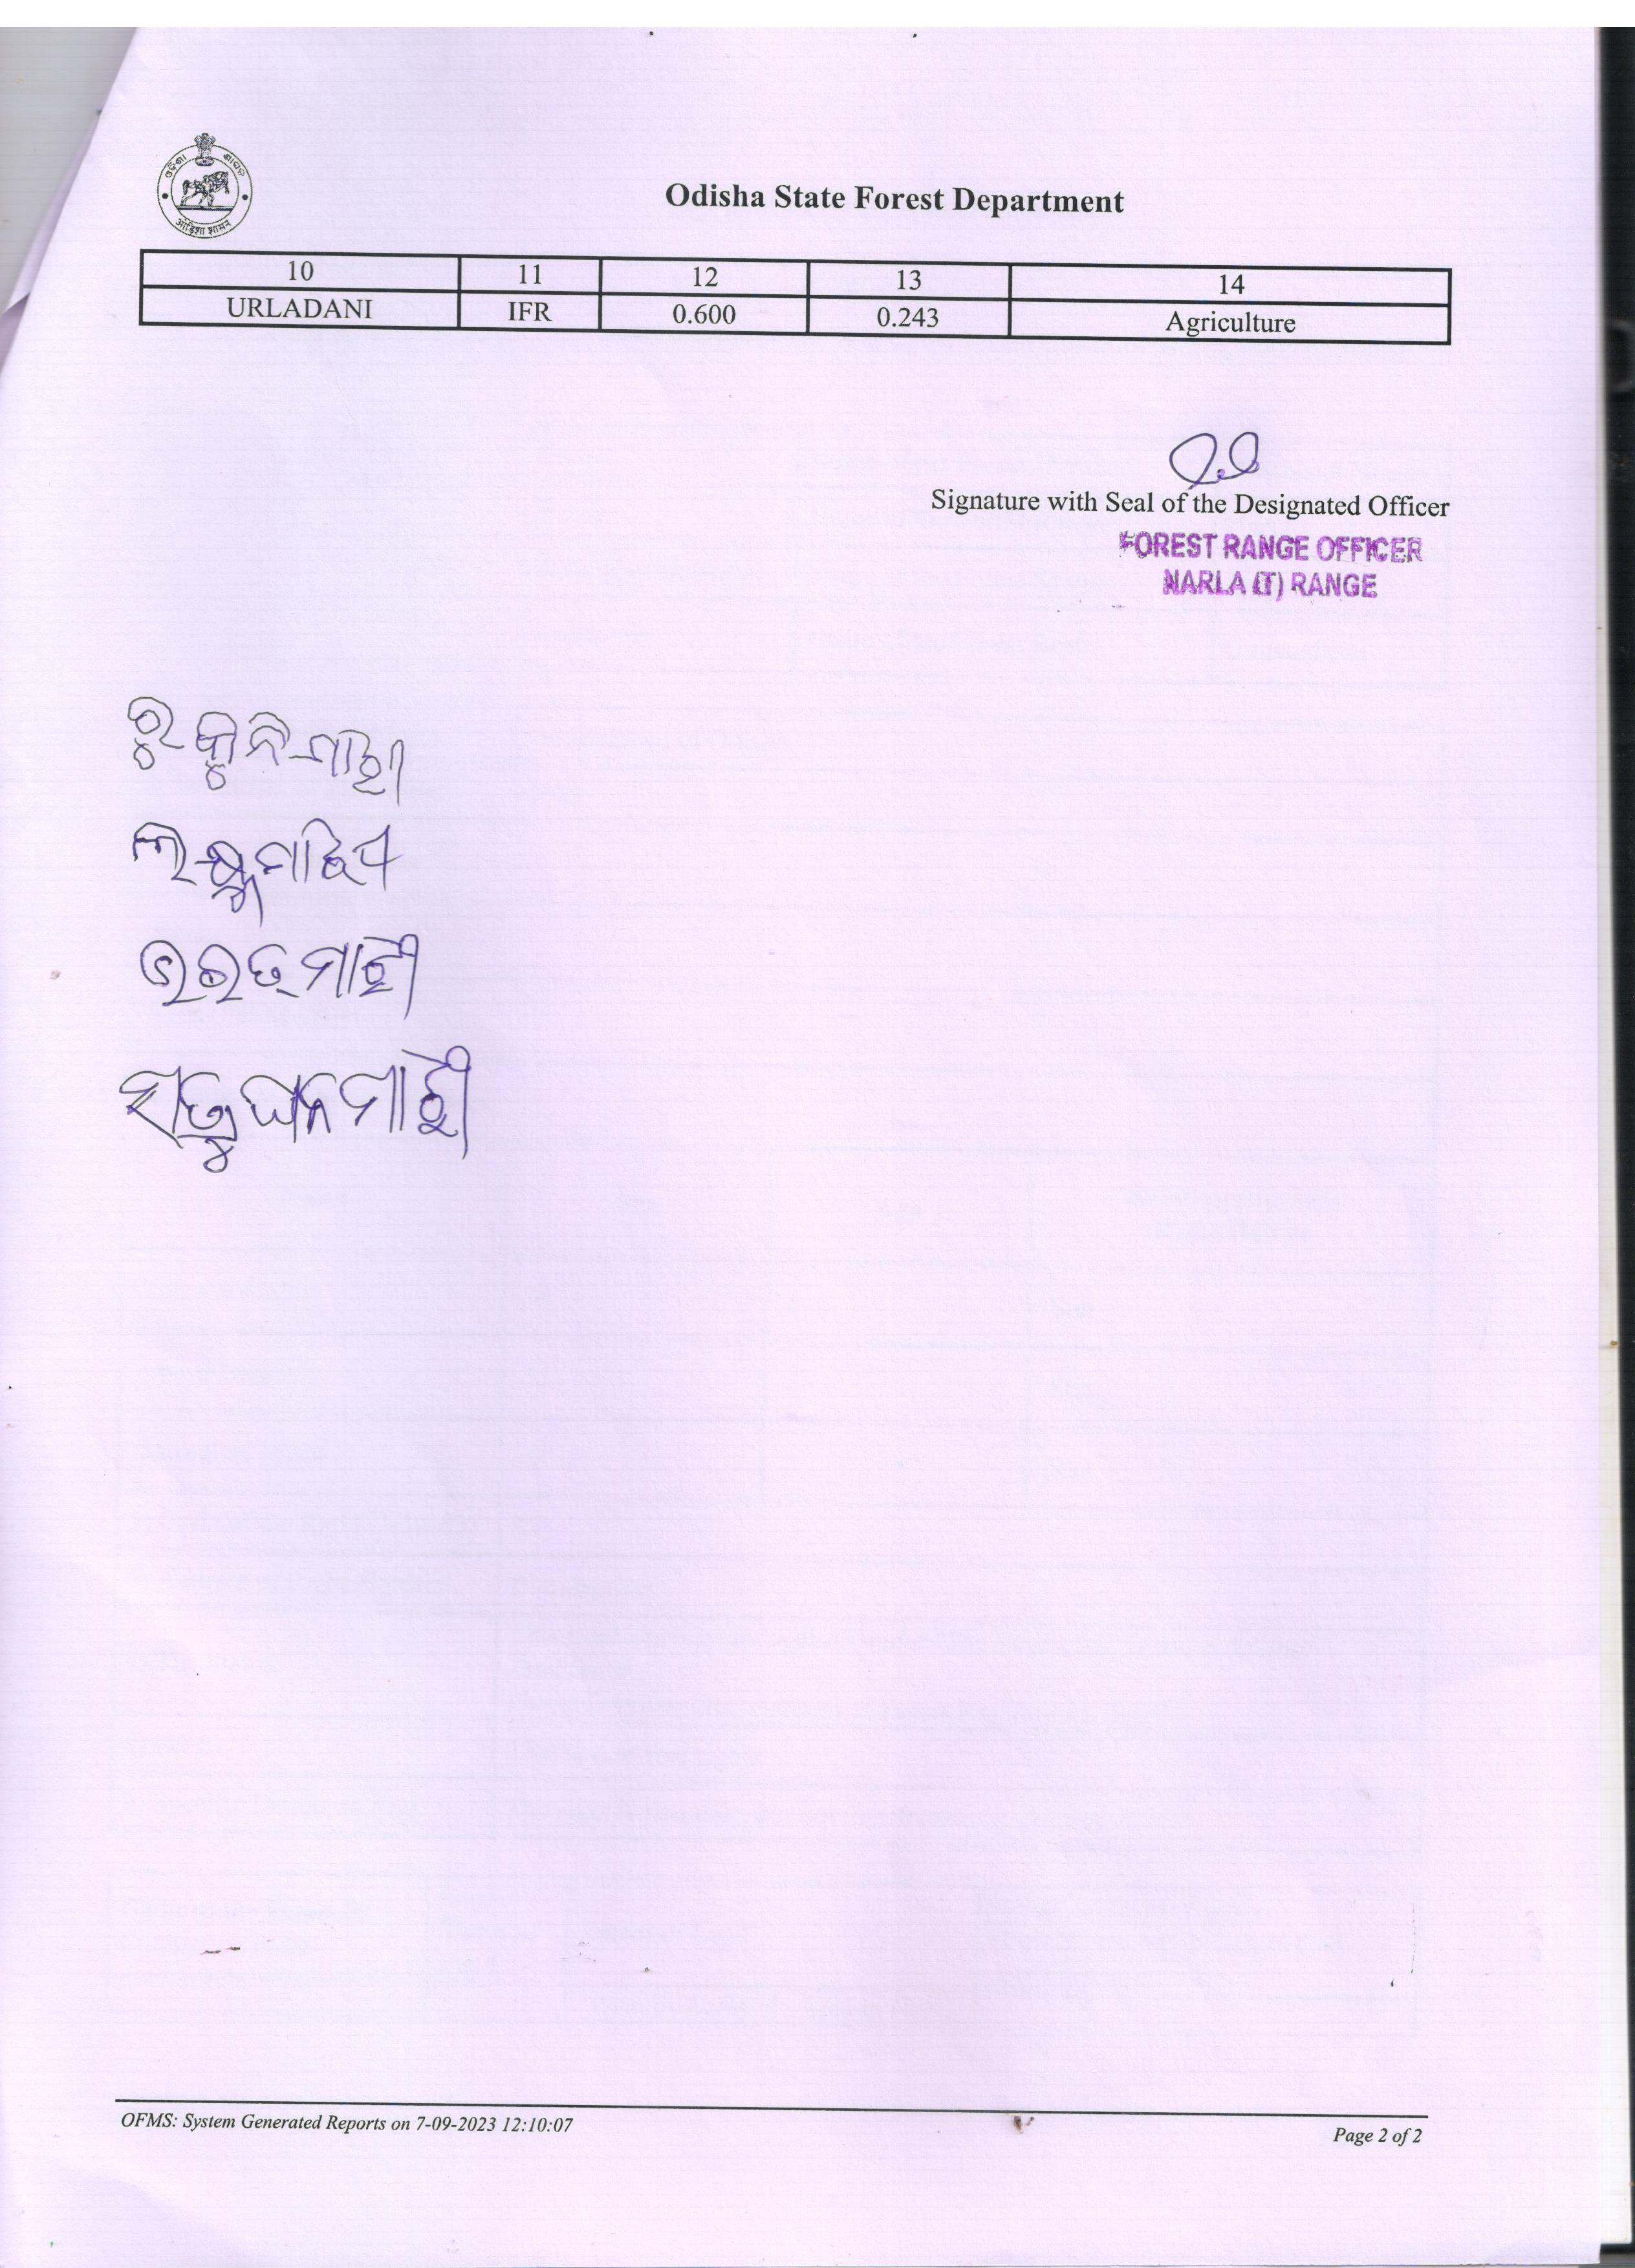 ଓଡ଼ିଶା ଶାସନ
ओड़िशा शासन
Odisha State Forest Department
10 11 12 13 14
URLADANI IFR 0.600 0.243 Agriculture
Signature with Seal of the Designated Officer
FOREST RANGE OFFICER
NARLA (T) RANGE
ରୁକୁନି ମାଝୀ
ଲକ୍ଷ୍ମୁ ମାଝି
ଭରତ୍ ମାଝୀ
ଶତ୍ରୁଘନ ମାଝୀ
OFMS: System Generated Reports on 7-09-2023 12:10:07
Page 2 of 2